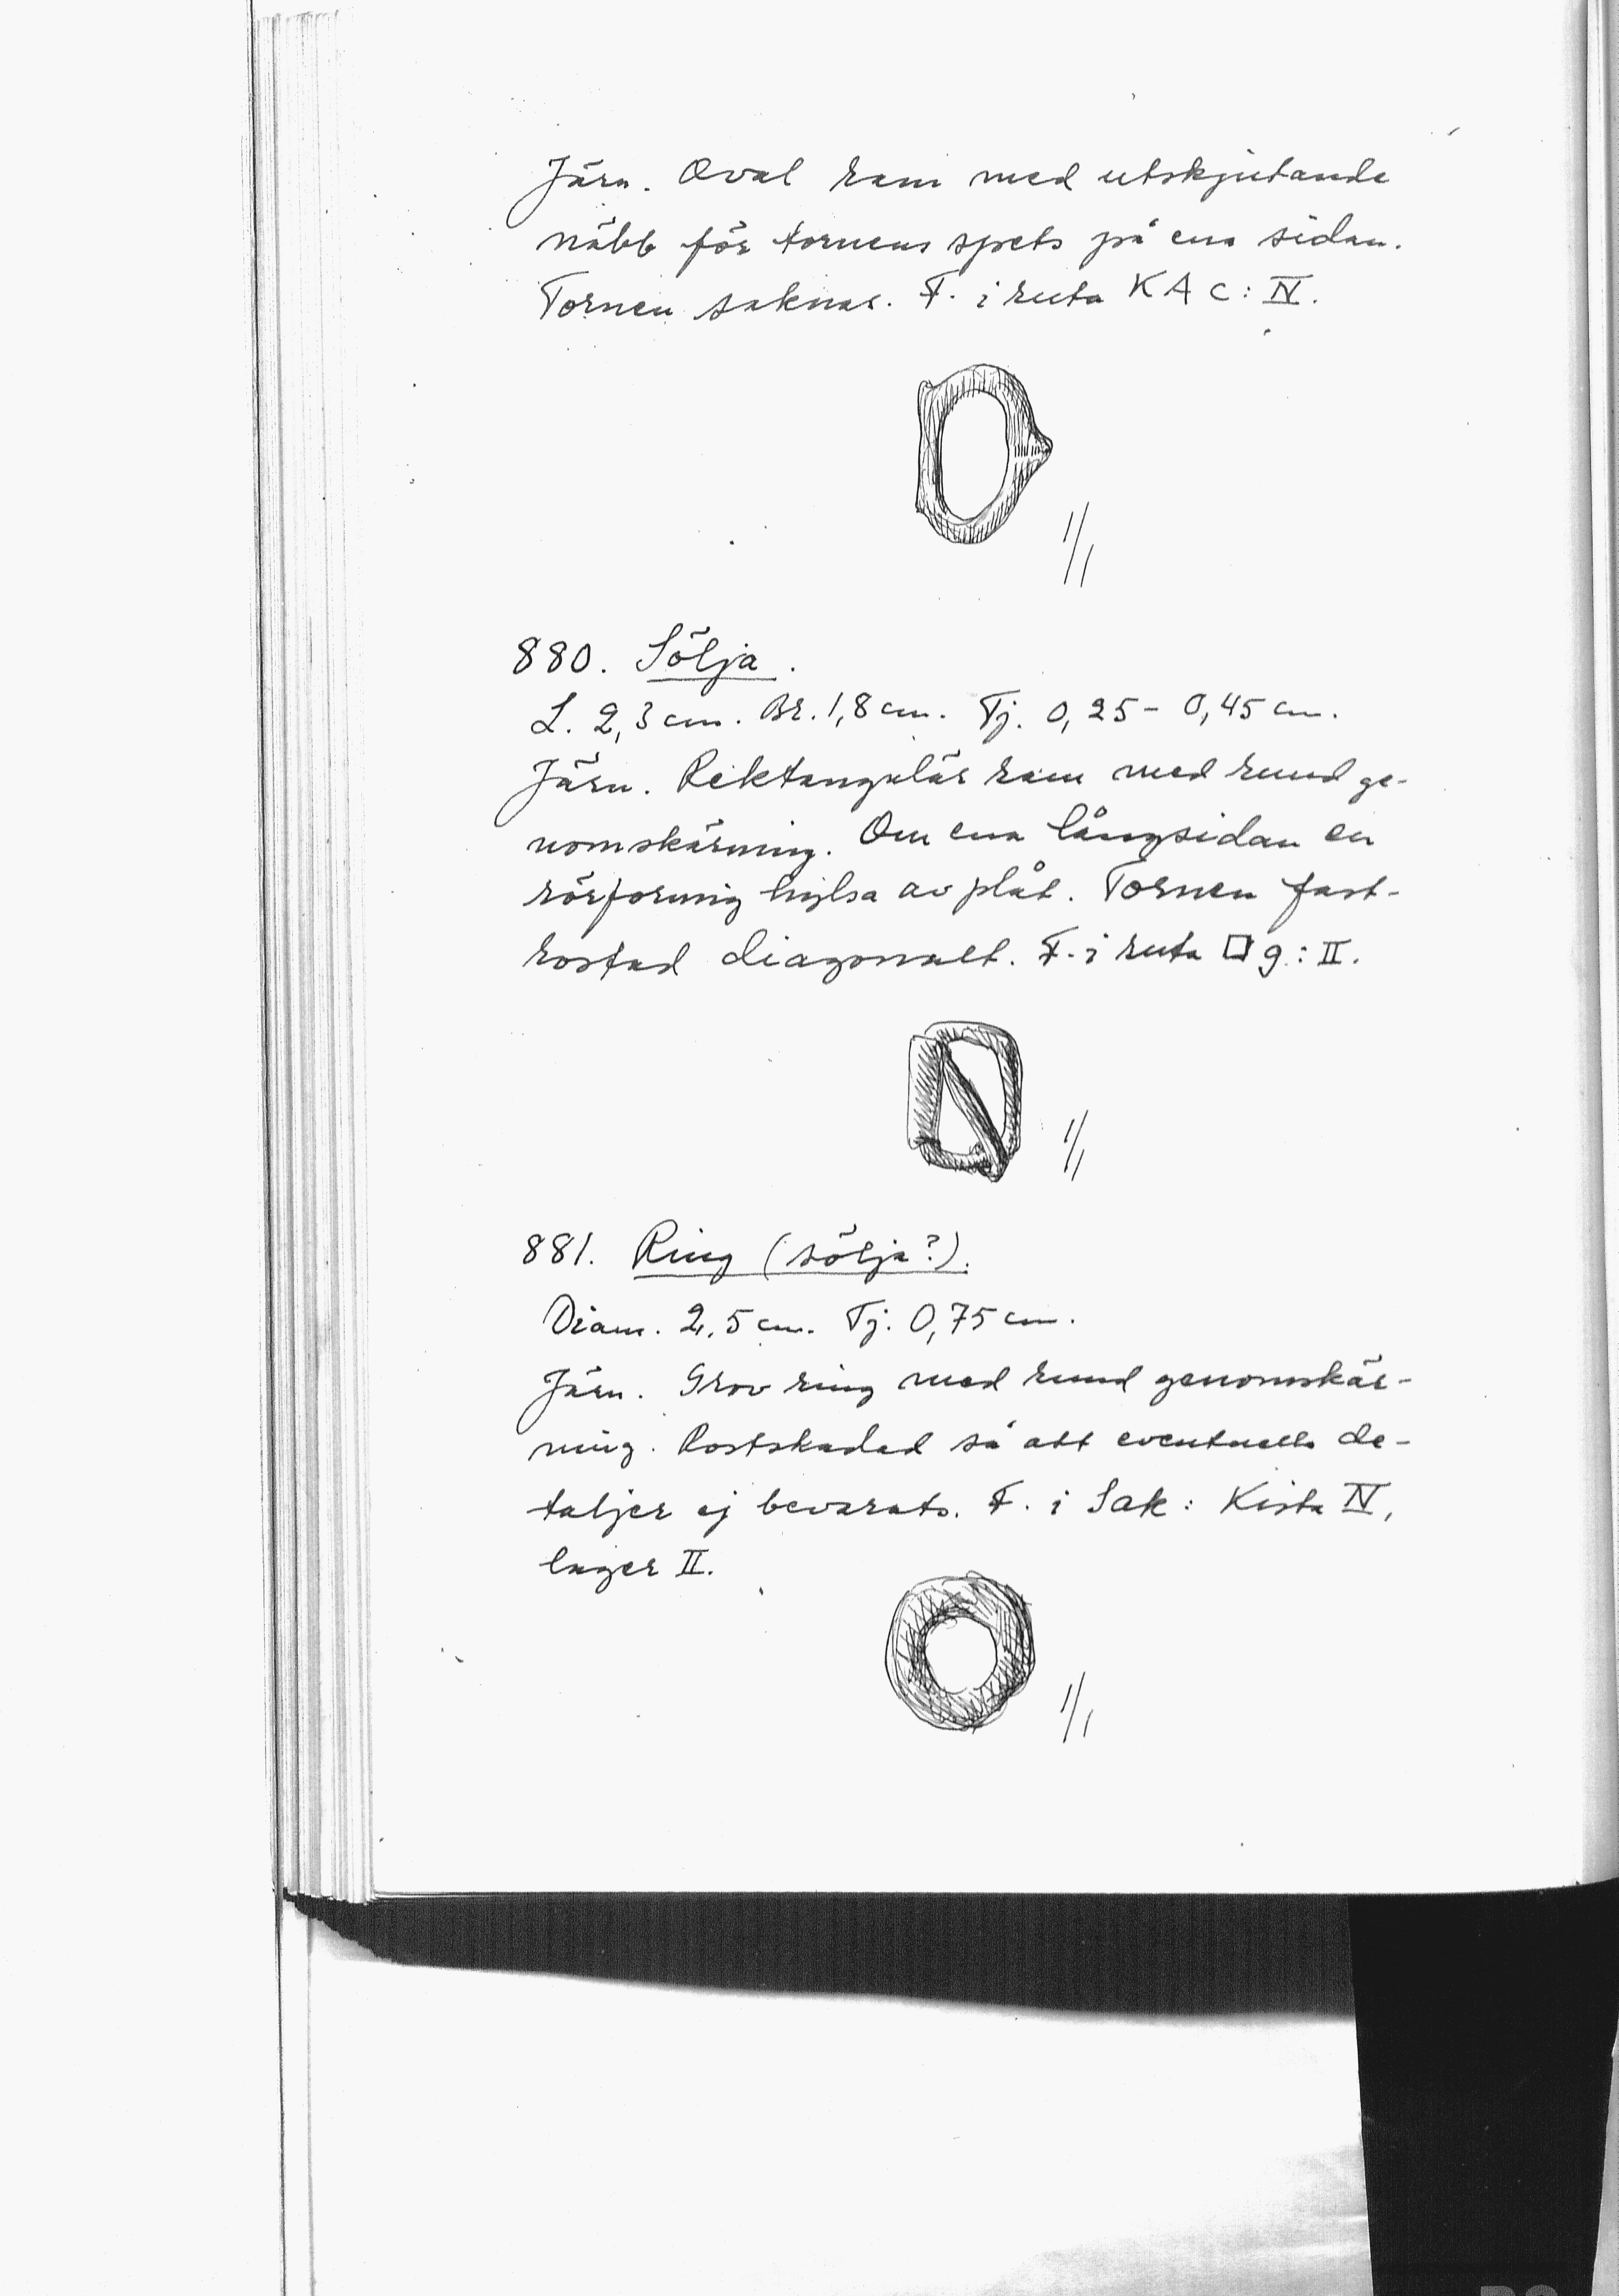 Järn. Oval ram med utskjutande
näbb för tornens spets på ena sidan.
Tornen saknas. F. i ruta KA C: IV.
1/1
880. Sölja.
L. 2,3 cm. Br. 1,8 cm. Tj. 0,25 - 0,45 cm.
Järn. Rektangulär ram med rund ge-
nomskärning. Om ena långsidan en
rörformig hylsa av plåt. Tornen fast-
rostad diagonalt. F. i ruta □ 9: II.
1/1
881. Ring (sölja?).
Diam. 2,5 cm. Tj. 0,75 cm.
Järn. Grov ring med rund genomskär-
ning. Rostskadad så att eventuella de-
taljer ej bevarats. F. i Sak: Kista IV,
lager II.
1/1